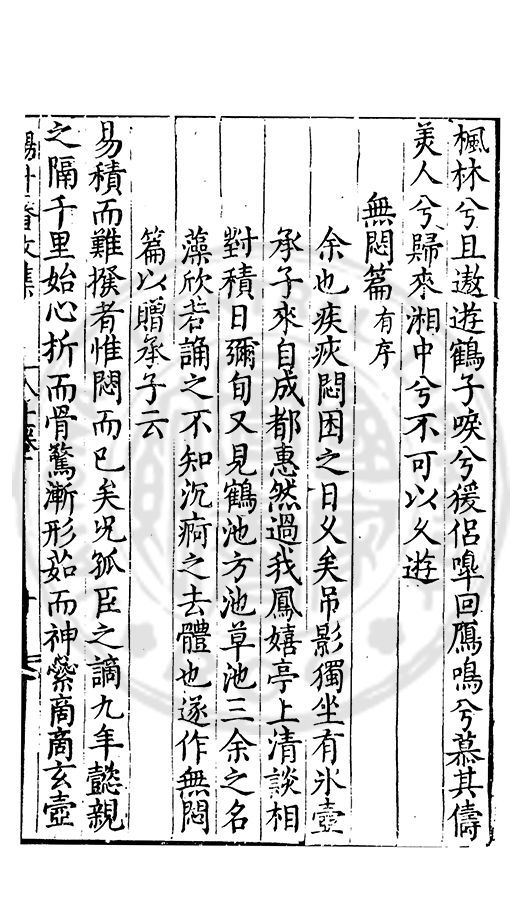 楓林兮且遨遊鶴子唳兮猨侶嘷回鴈鳴兮慕其儔
美人兮歸來湘中兮不可以久遊
無悶篇有序
余也疾疢悶困之日久矣吊影獨坐有氷壺
承子來自成都惠然過我鳳嬉亭上清談相
對積日彌旬又見鶴池方池草池三余之名
藻欣若誦之不知沉痾之去體也遂作無悶
篇以贈承子云
易積而難撥者惟悶而已矣况孤臣之謫九年懿親
之隔千里始心折而骨驚漸形茹而神縈啇啇玄壺